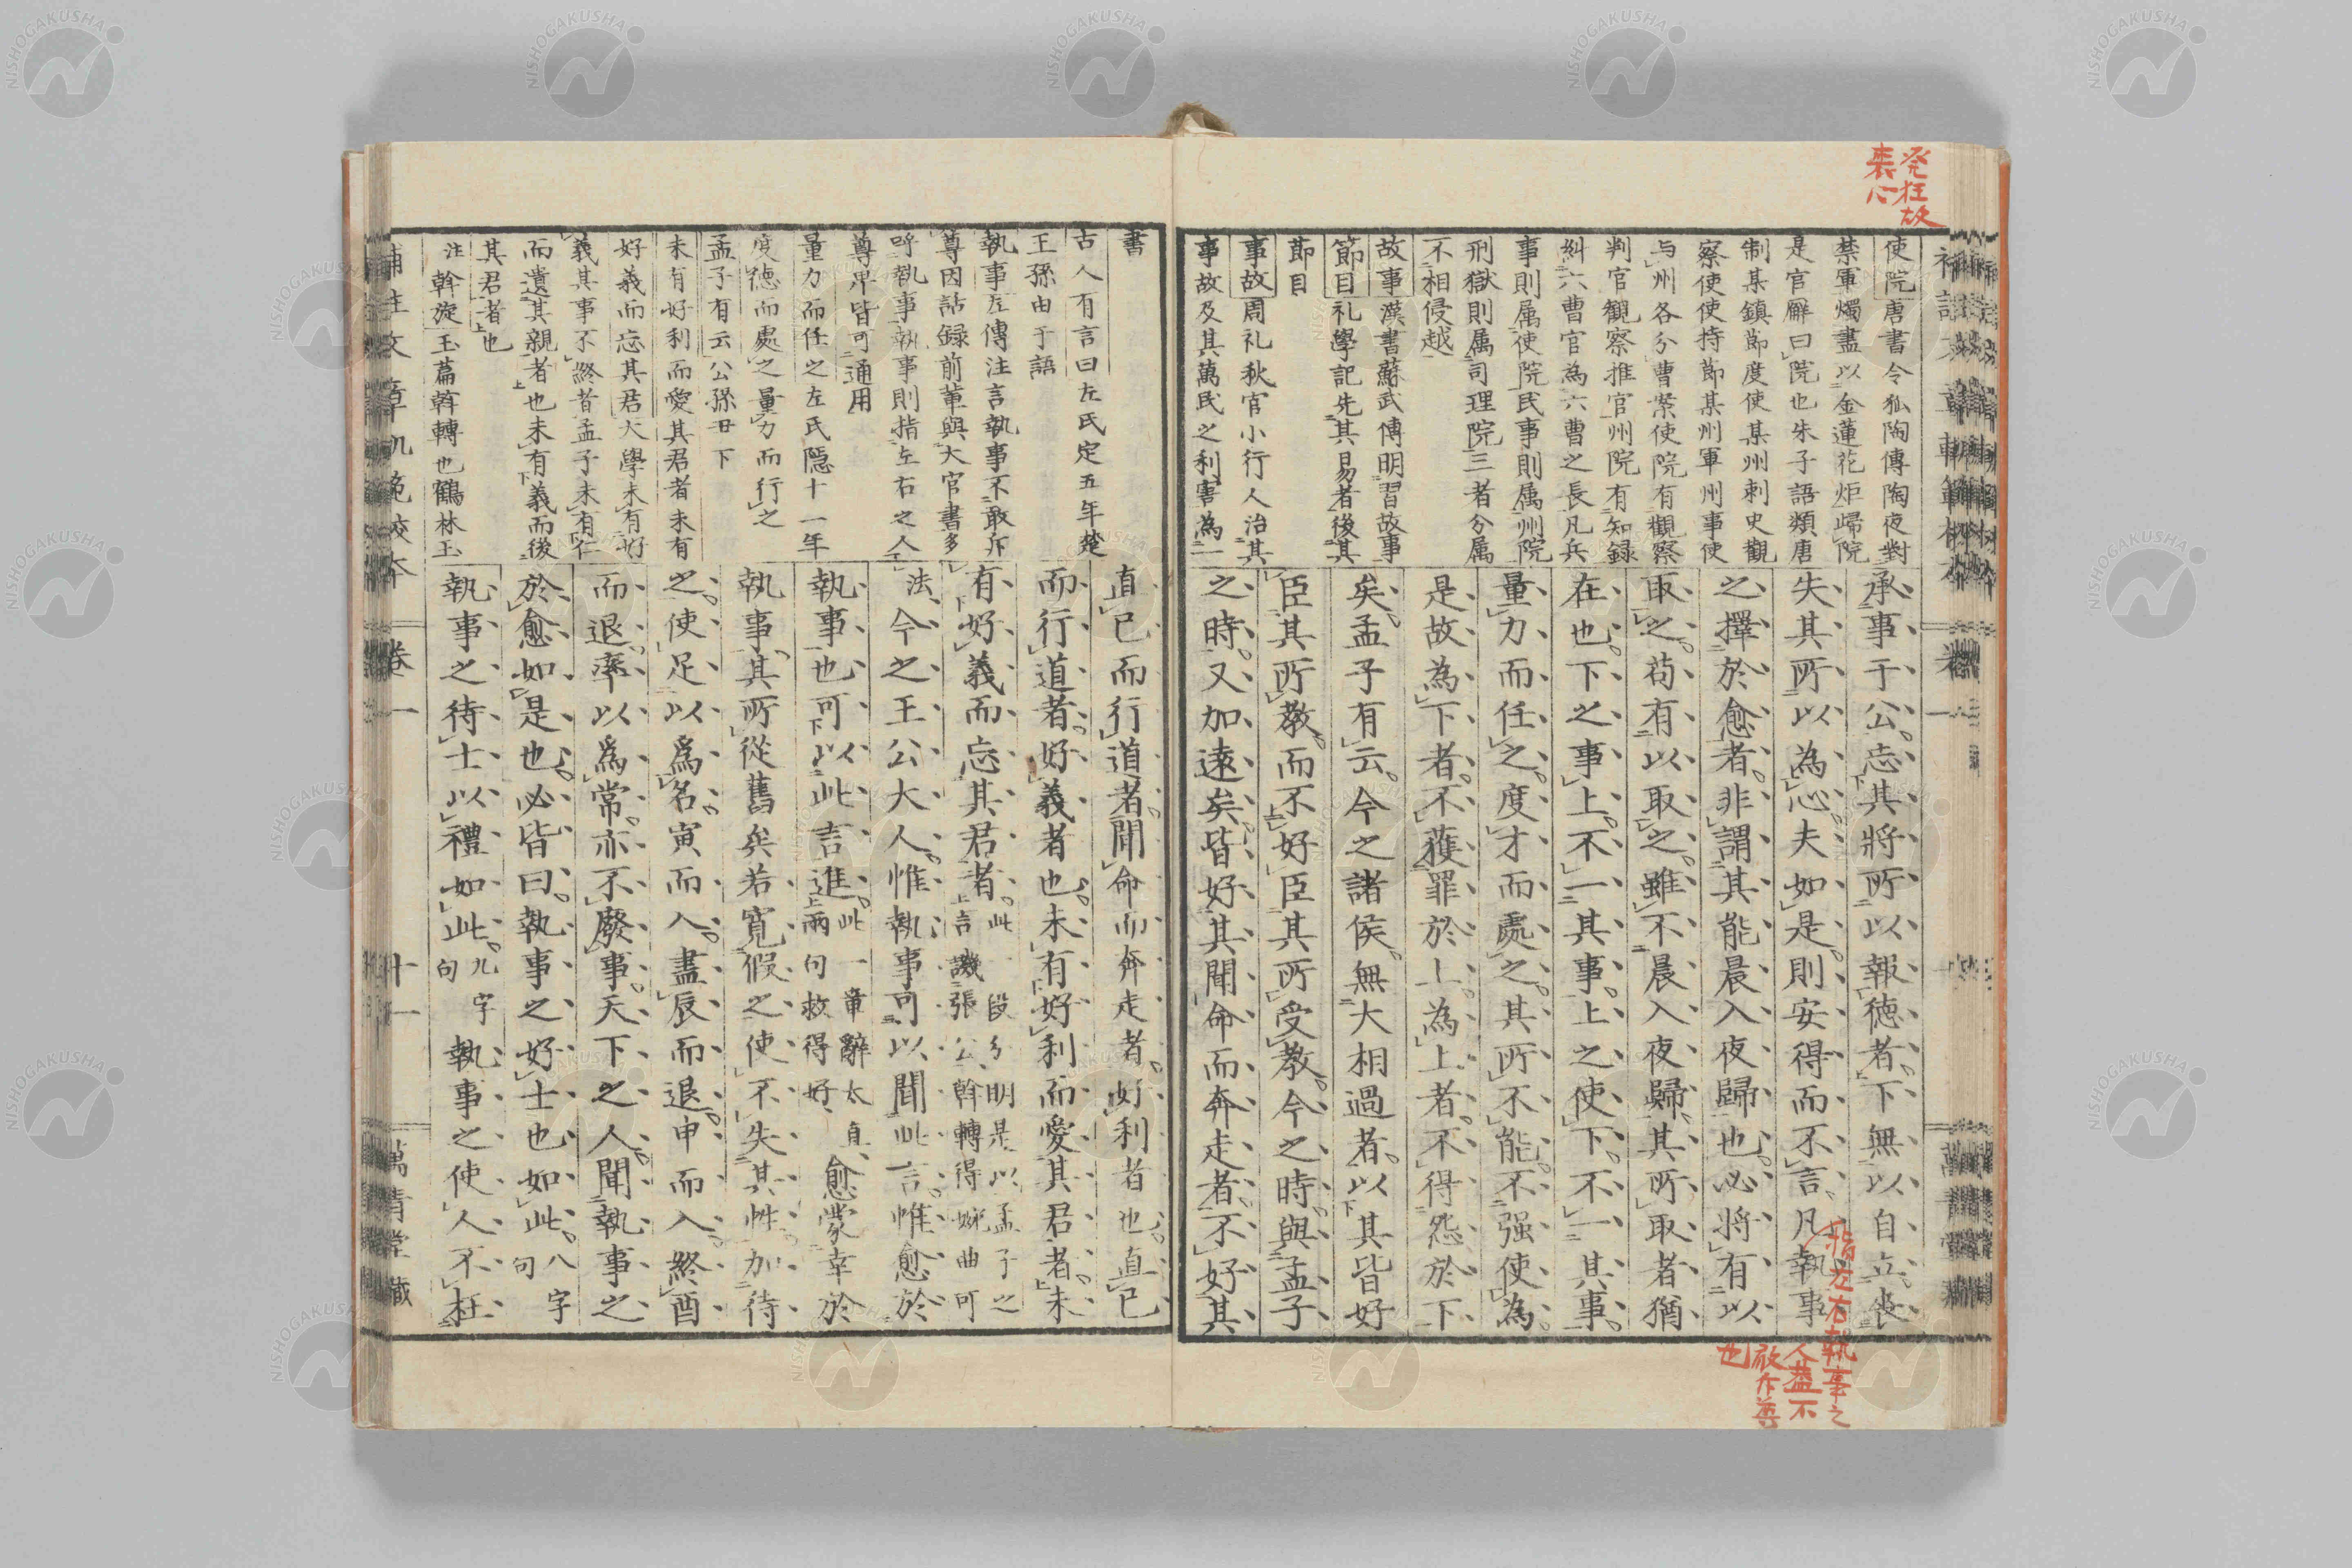 発狂故
喪心
使院唐書令狐陶傳陶夜對
禁軍燭盡以金蓮花炬歸院
是官廨曰院也朱子語類唐
制某鎮節度使某州刺史觀
察使使持節某州軍州事使
与州各分曹案使院有觀察
判官觀察推官州院有知録
糾六曹官為六曹之長凡兵
事則属使院民事則属州院
刑獄則属司理院三者分属
不相侵越
故事漢書蘇武傳明習故事
節目礼學記先其易者後其
節目
事故周礼秋官小行人治其
事故及其萬民之利害為一
承事于公忘其將所以報德者下無以自立喪
失其所以為心夫如是則安得而不言凡執事
之擇於愈者非謂其能晨入夜歸也必將有以
取之苟有以取之雖不晨入夜歸其所取者猶
在也下之事上不一其事上之使下不一其事
量力而任之度才而處之其所不能不强使為
是故為下者不獲罪於上為上者不得怨於下
矣孟子有云今之諸侯無大相過者以其皆好
臣其所教而不好臣其所受教今之時與孟子
之時又加遠矣皆好其聞命而奔走者不好其
指左右執事之
人蓋不
敢斥尊
也
書
古人有言曰左氏定五年楚
王孫由于語
執事左傳注言執事不敢斥
尊因話録前輩與大官書多
呼執事執事則指左右之人
尊卑皆可通用
量力而任之左氏隠十一年
度德而處之量力而行之
孟子有云公孫丑下
未有好利而愛其君者未有
好義而忘其君大學未有好
義其事不終者孟子未有仁
而遺其親者也未有義而後
其君者也
注斡旋玉篇斡轉也鶴林玉
直已而行道者聞命而奔走者好利者也直已
而行道者好義者也未有好利而愛其君者未
有好義而忘其君者此段分明是以孟子之言譏張公斡轉得婉曲可法
今之王公大人惟執事可以聞此言惟愈於
執事也可以此言進此一章辭太直兩句救得好愈蒙幸於
執事其所從舊矣若寛假之使不失其性加待
之使足以爲名寅而入盡辰而退申而入終酉
而退率以爲常亦不廢事天下之人聞執事之
於愈如是也必皆曰執事之好士也如此八字句
執事之待士以禮如此九字句執事之使人不枉
補註文章軌範校本
卷一
十一
萬青堂藏